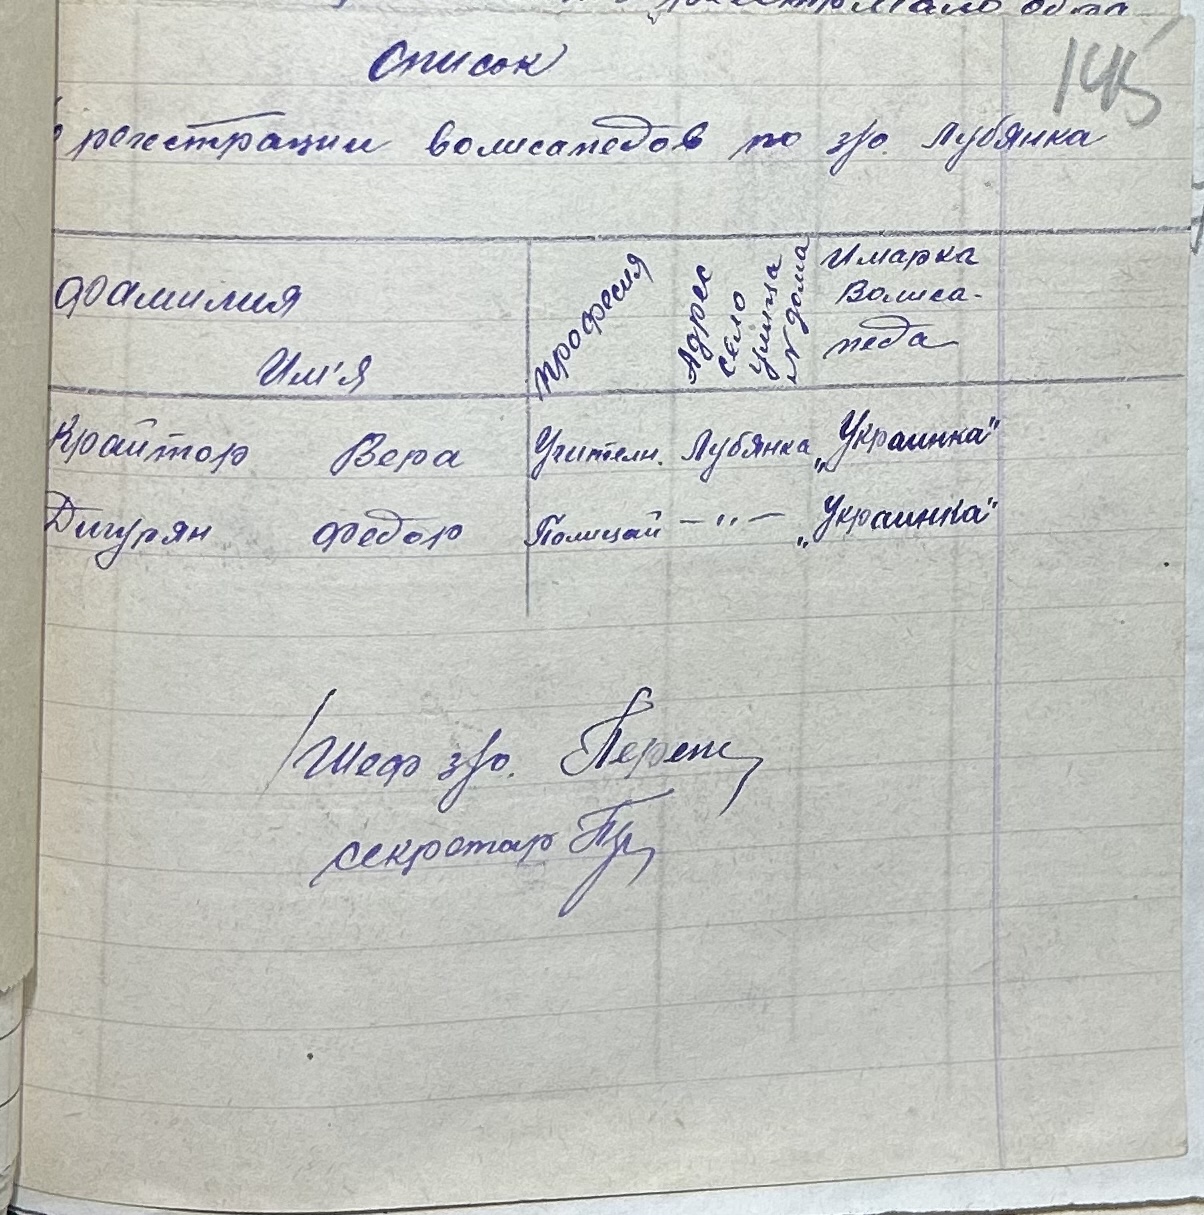 145
Список
регестрации волисапедов по з/о. Лубянка
Фамилия
Им'я
професия
Адрес
село
улица
N дома
Имарка
Волиса-
педа
Крайтор Вера Учителн. Лубянка „Украинка"
Дигурян Федор Полицай —"— „Украинка"
Шеф з/о.
секретар